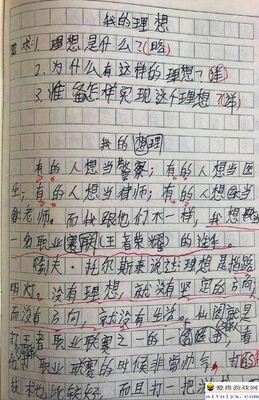 我的理想
要求:1.理想是什么?(略)
2.为什么有这样的理想?(详)
3.准备怎样实现这个理想?(详)
我的理想
有的人想当警察;有的人想当医
生;有的人想当律师;有的人想当
老师。而我跟他们不一样,我想
一名职业《王者荣耀》的选手。
列夫·托尔斯泰说过:理想是指路
明灯。没有理想,就没有坚定的方向
而没有方向,就没有生活。
打王者职业联赛之一的
打职业联赛的时候非常帅气,打的
技术也比较好,而且打一把
爱推游戏网
aituiyx.com